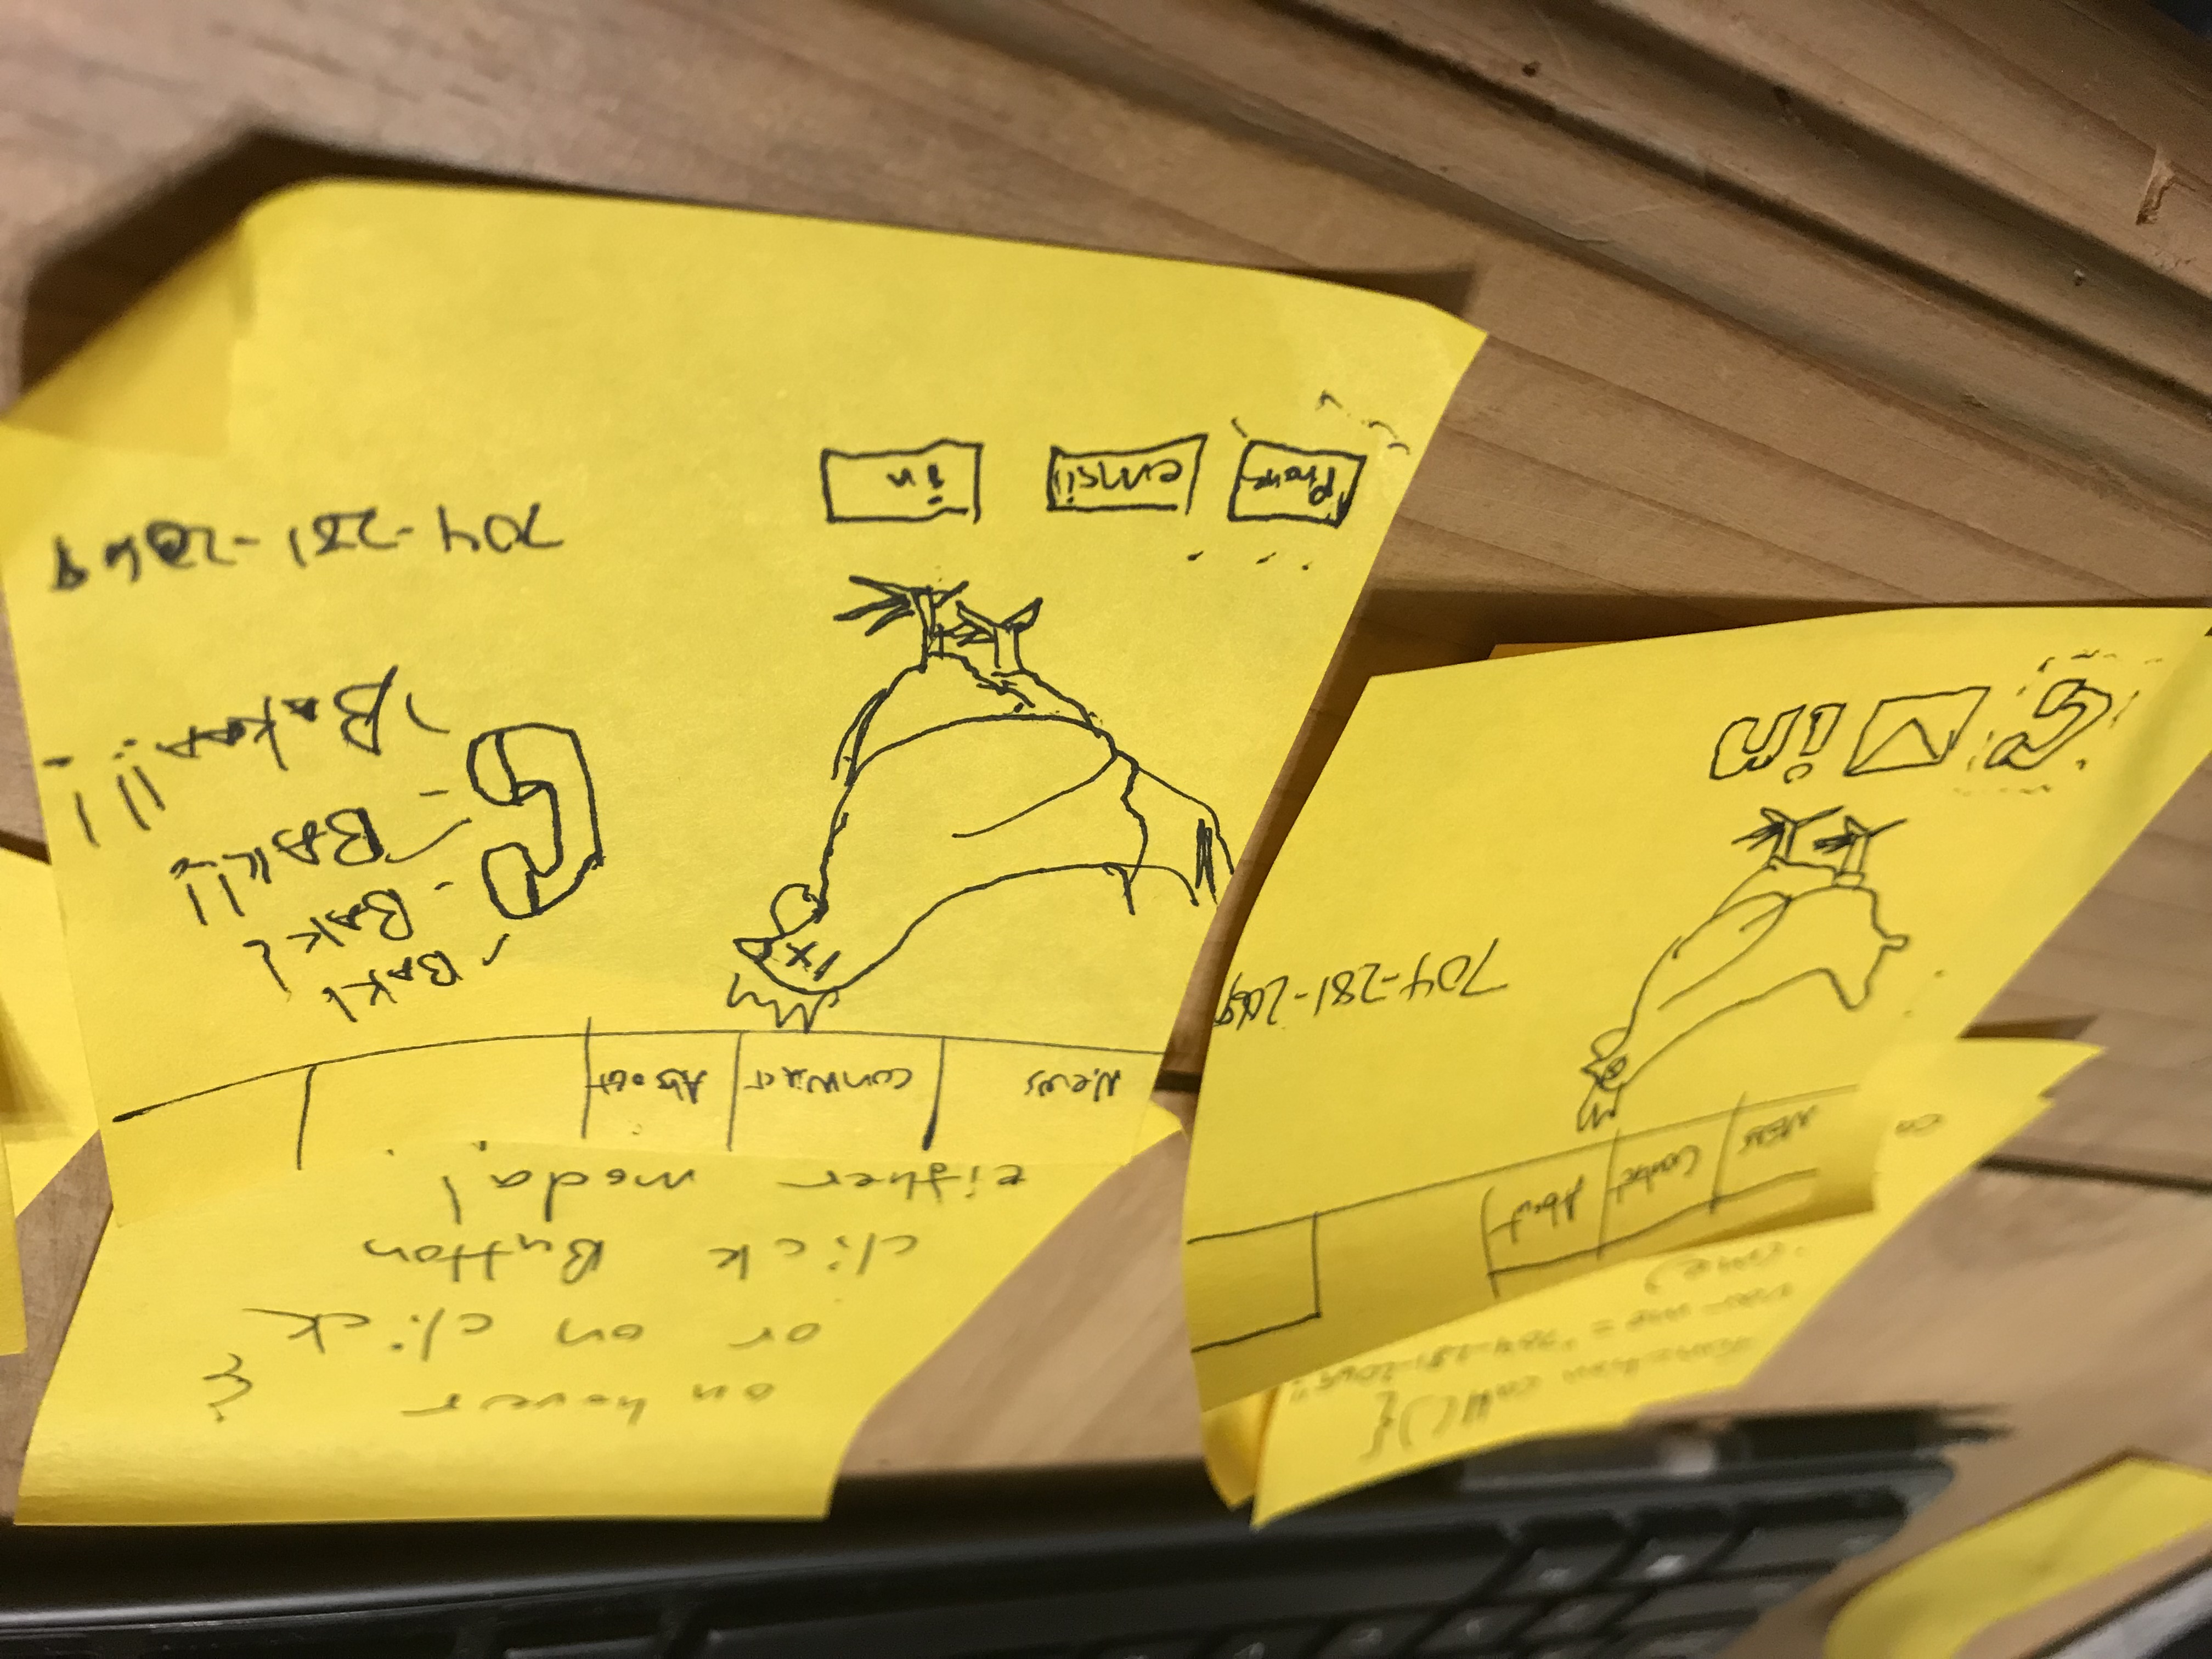 function call(){
var me = "704-281-2069"
(me)
News Contact About
704-281-2069
in
on hover &
or on click
click Button
either modal
News contact About
BAK!
BAK!
BAK!!
BAKAA!!!
704-281-2069
Phone email in